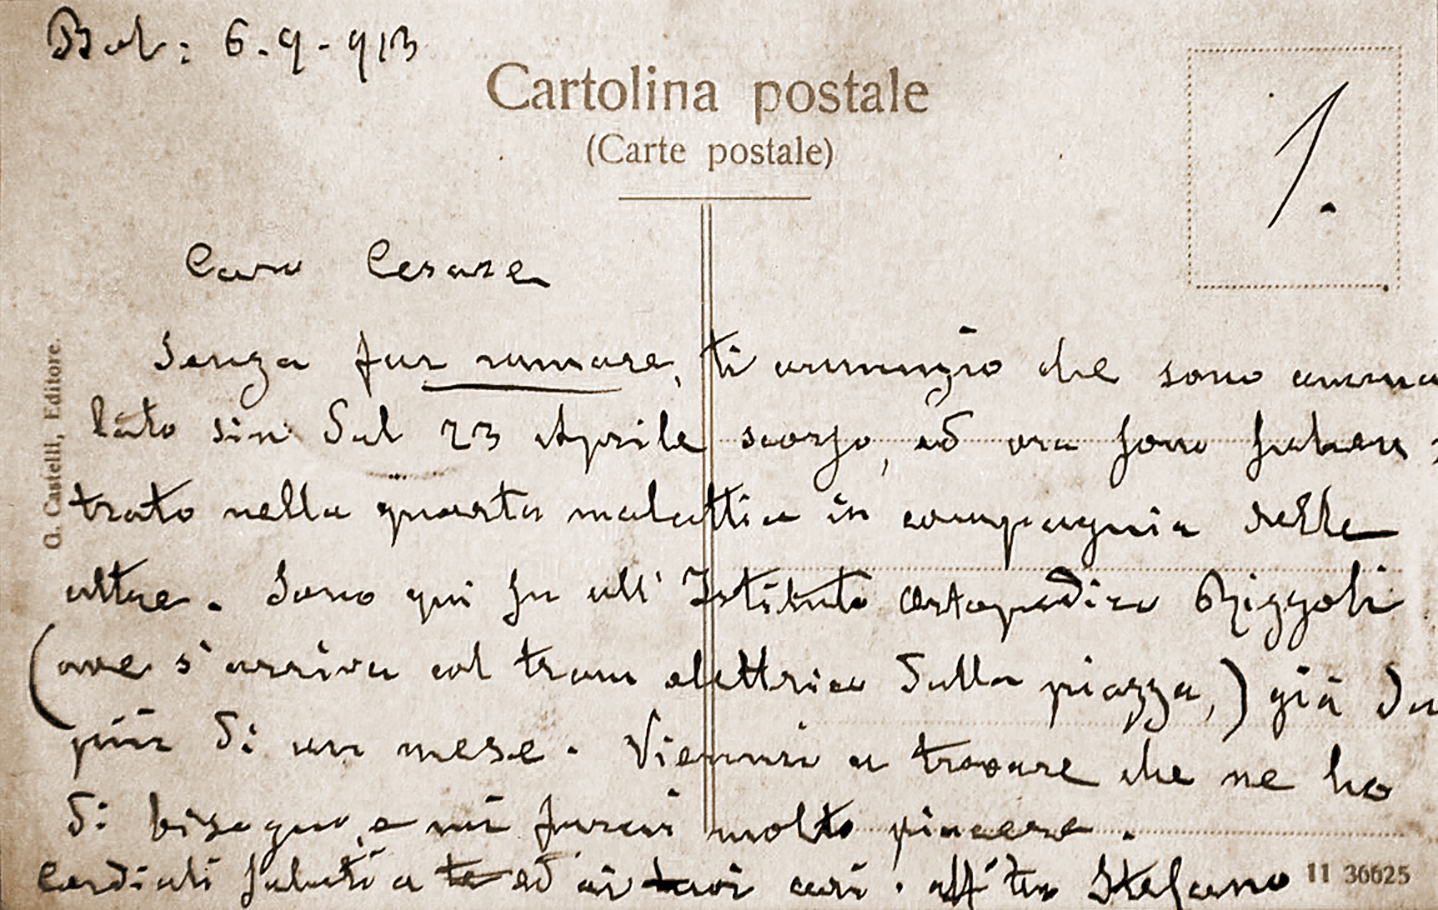 Bol: 6-9-913
Cartolina postale
(Carte postale)
1.
Caro Cesare
Senza far rumore, ti annunzio che sono amma
lato sin dal 23 Aprile scorso, ed ora sono
trato nella quarta malattia in compagnia delle
altre. Sono qui su all' Istituto Ortopedico Rizzoli
(ove s'arriva col tram elettrico dalla piazza,) già da
più di un mese. Vienmi a trovare che ne ho
di bisogno, e mi farai molto piacere.
Cordiali saluti a te ed ai tuoi cari. aff. tuo Stefano
G. Castelli, Editore.
11 36625